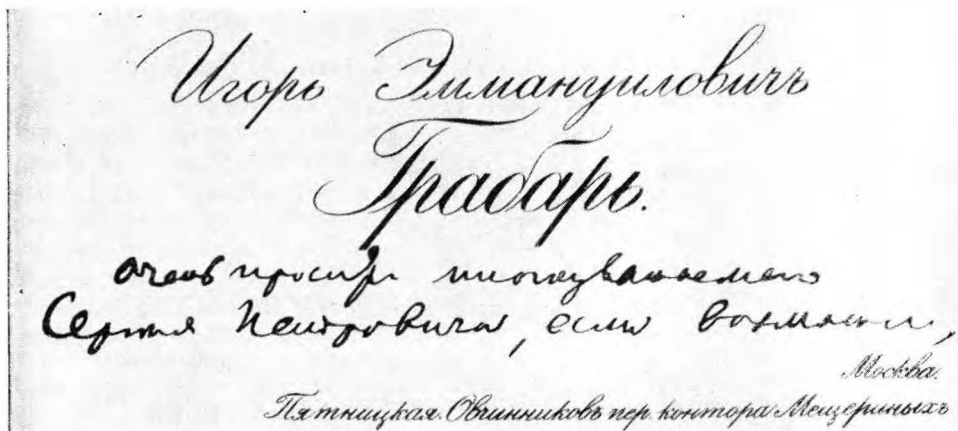 Игорь Эммануиловичъ
Грабарь.
очень проситъ многоуважаемаго
Сергея Петровича, если возможно,
Москва.
Пятницкая. Овчинниковъ пер. контора Мещериныхъ